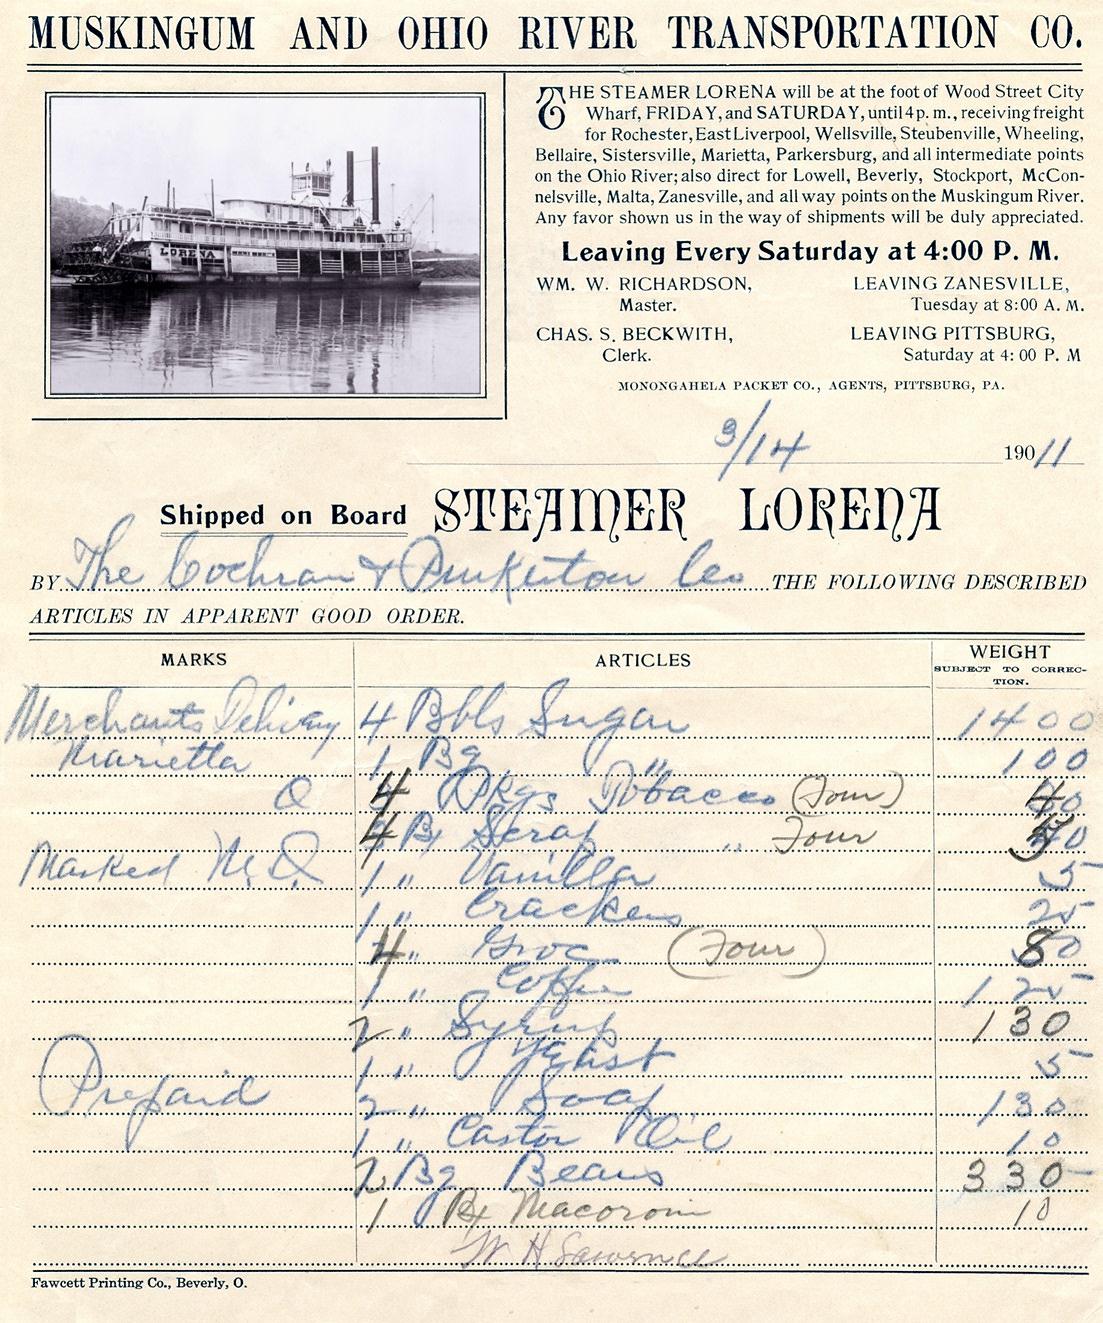 MUSKINGUM AND OHIO RIVER TRANSPORTATION CO.
THE STEAMER LORENA will be at the foot of Wood Street City
Wharf, FRIDAY, and SATURDAY, until 4 p. m., receiving freight
for Rochester, East Liverpool, Wellsville, Steubenville, Wheeling,
Bellaire, Sistersville, Marietta, Parkersburg, and all intermediate points
on the Ohio River; also direct for Lowell, Beverly, Stockport, McCon-
nelsville, Malta, Zanesville, and all way points on the Muskingum River.
Any favor shown us in the way of shipments will be duly appreciated.
Leaving Every Saturday at 4:00 P. M.
WM. W. RICHARDSON, LEAVING ZANESVILLE,
Master. Tuesday at 8:00 A. M.
CHAS. S. BECKWITH, LEAVING PITTSBURG,
Clerk. Saturday at 4:00 P. M
MONONGAHELA PACKET CO., AGENTS, PITTSBURG, PA.
LORENA
3/14 190 11
Shipped on Board STEAMER LORENA
BY The Cochran & Pinkerton Co THE FOLLOWING DESCRIBED
ARTICLES IN APPARENT GOOD ORDER.
MARKS ARTICLES WEIGHT
SUBJECT TO CORREC-
TION.
Merchants Delivery 4 Bbls Sugar 1400
Marietta 1 Bg " 100
O 4 Pkgs Tobacco (Four)
4 Bx Scrap " Four
Marked M.D. 1 " Vanilla 5
1 " Crackers 25
4 " Groc (Four) 80
1 " Coffee 125
2 " Syrup 130
1 " Yeast 5
Prepaid 2 " Soap 130
1 " Castor Oil 10
2 Bg Beans 330
1 Bx Macoroni 10
W H
Fawcett Printing Co., Beverly, O.